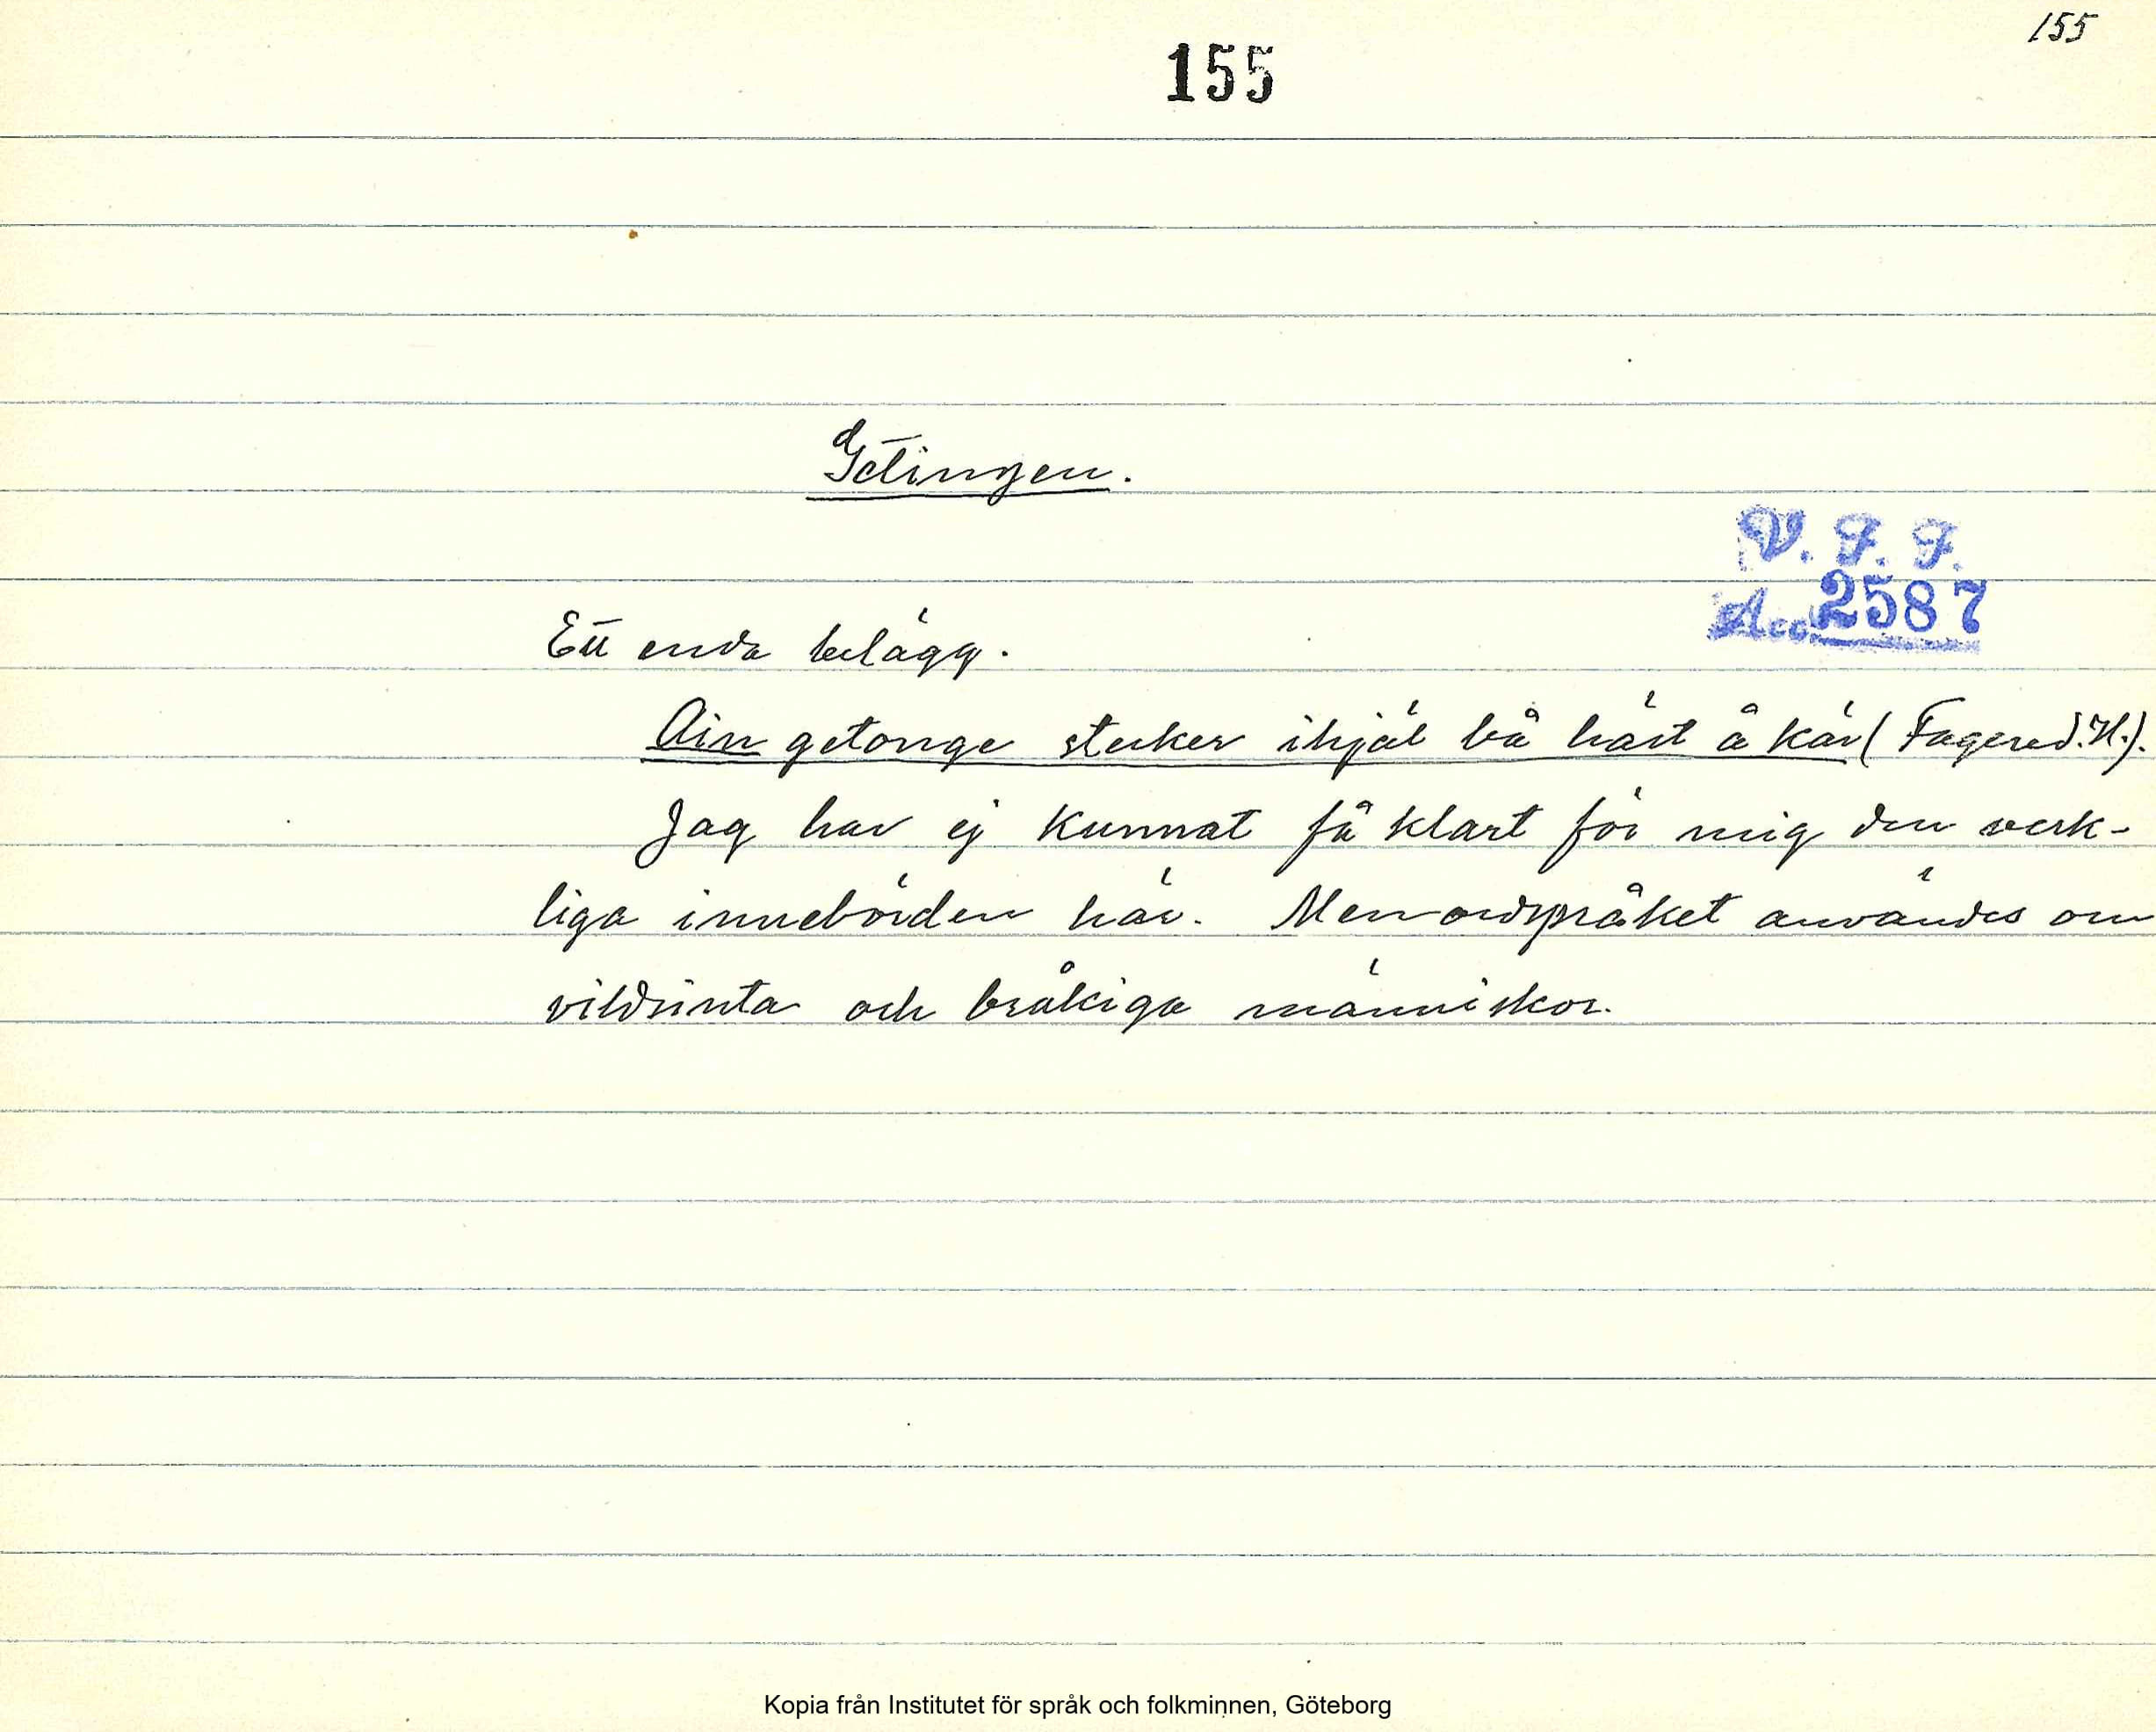 155
155
Getingen.
V. F. F.
Acc. 2587
Ett enda belägg.
Ain getonge stecker ihjäl bå häst å kär (Fagered. H.).
Jag har ej kunnat få klart för mig den verk-
liga innebörden här. Men ordspråket användes om
vildsinta och bråkiga människor.
Kopia från Institutet för språk och folkminnen, Göteborg